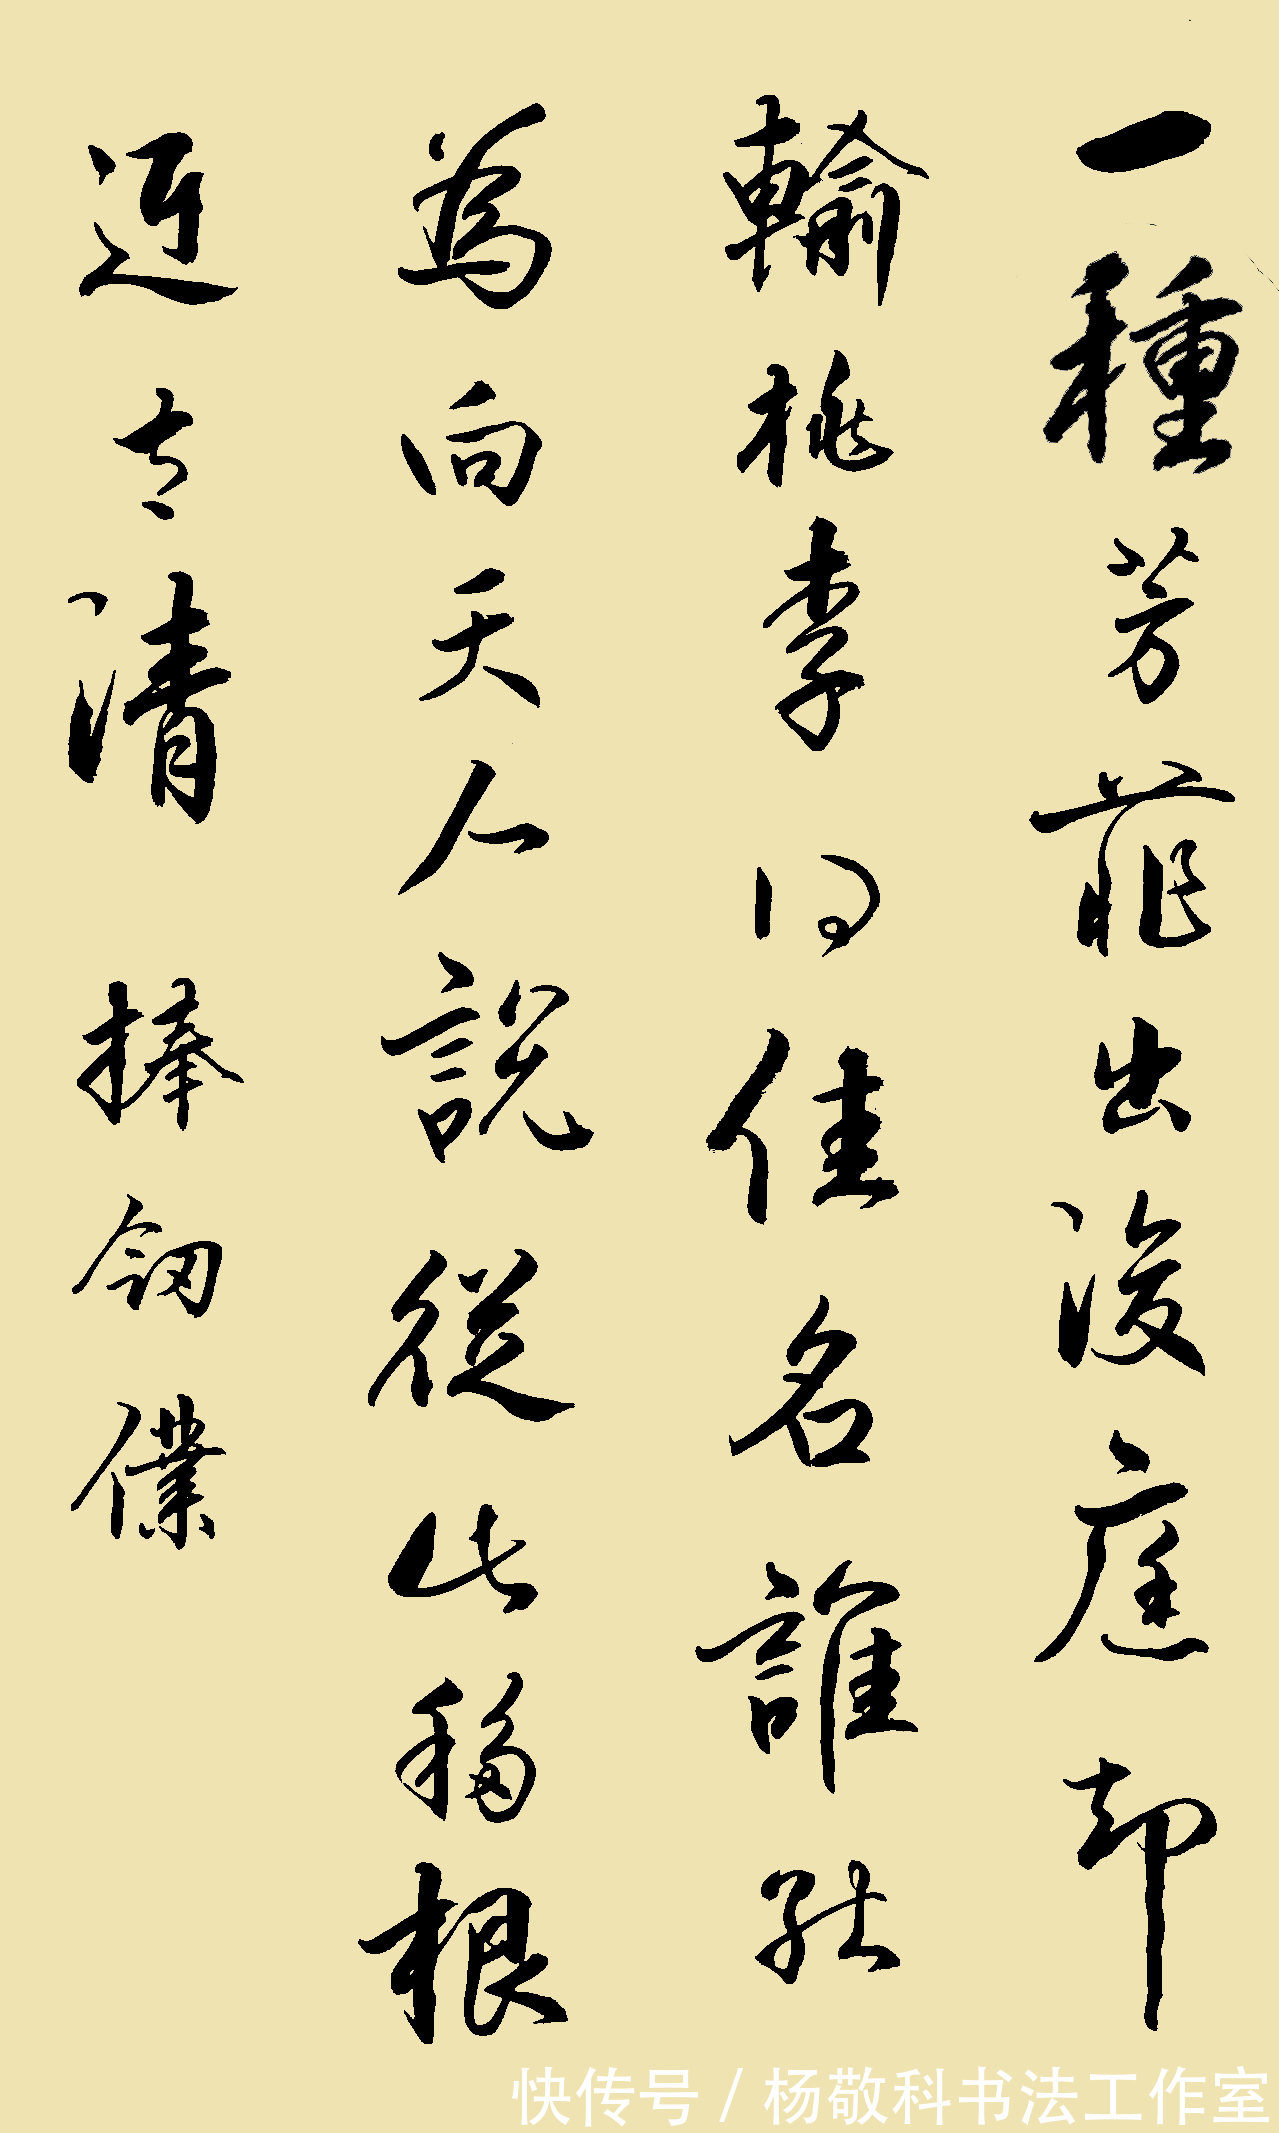 一種芳菲出後庭却
輸桃李得佳名誰能
為向天人說從此移根
近太清 捧劒僕
快传号/杨敬科书法工作室